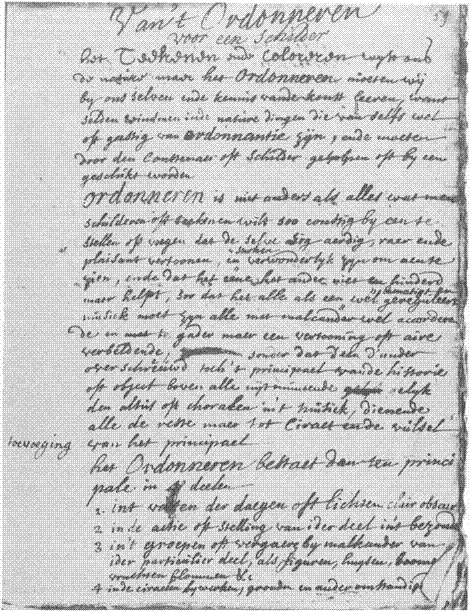 Van't Ordonneren
59
voor een Schilder
het Teekenen ende Coloreren wijst ons
de nature maer het Ordonneren moeten wij
by ons selven ende kennis vande konst leeren, want
selden vindmen inde nature dingen die van selfs wel
oft gastig van ordonnantie zijn, ende moeten
door den Constenaer oft Schilder geholpen oft by een
geschikt worden
Ordonneren is niet anders als alles wat men
schilderen oft teekenen wilt soo constig by een te
stellen oft vougen dat de selve oog aerdig, raer ende
plaisant vertoonen, en verwonderlyk zijn om aen te
zien, ende dat het eene het ander niet en hinderd
maer helpt, soo dat het alle als een wel gereguleert
musiek moet zijn alle met malcander wel accorderen
de en met te gader maer een vertooning oft aire
verbeldende, sonder dat d'een d'ander
overschreeuwd toch 't principael vande historie
oft object boven alle uijtmuntende gelyk
den altus oft choralen in't musiek, dienende
alle de reste maer tot Ciraet ende vulsel
toevoeging
van het principael
het Ordonneren bestaet dan ten princi
pale in 4 deelen
1 int der daegen oft lichten clair obscuer
2 in de actie oft stelling van ider deel int bezonder
3 in't groepen oft vergaeren by malkander van
ider particulier deel, als figuren, huysen, boomen
vruchten blommen &c
4 inde ciraeten bywerken, gronden en ander omstandig